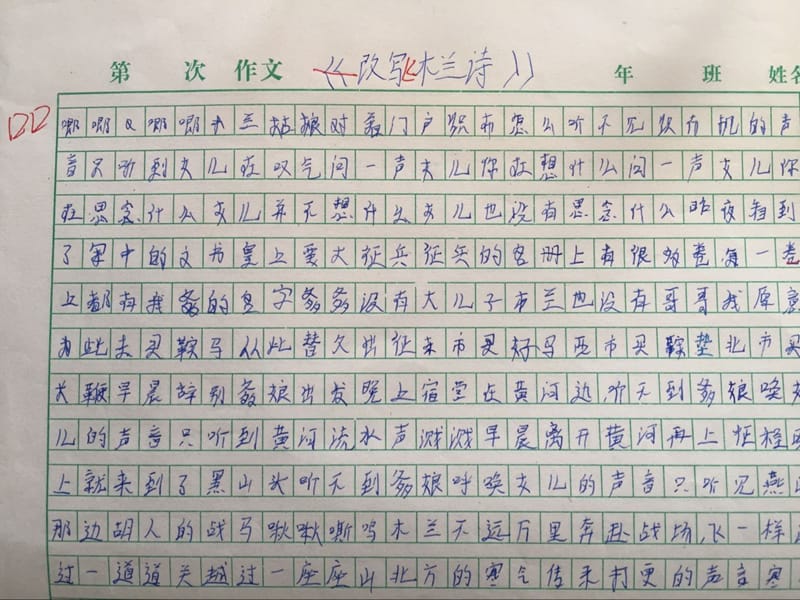 第 次 作文 《改写木兰诗》 年 班 姓名
唧唧又唧唧木兰姑娘对着门户织布怎么听不见织布机的声
音只听到女儿在叹气问一声女儿你在想什么问一声女儿你
在思念什么女儿并不想什么女儿也没有思念什么昨夜看到
了军中的文书皇上要大征兵征兵的名册上有很多卷每一卷
上都有我爹的名字爹爹没有大儿子木兰也没有哥哥我愿意
为此去买鞍马从此替父出征东市买好马西市买鞍垫北市买
长鞭早晨辞别爹娘出发晚上宿营在黄河边,听不到爹娘唤女
儿的声音只听到黄河流水声溅溅早晨离开黄河再上征程
上就来到了黑山头听不到爹娘呼唤女儿的声音只听见燕山
那边胡人的战马啾啾嘶鸣木兰不远万里奔赴战场,飞一样
过一道道关越过一座座山北方的寒气传来打更的声音寒